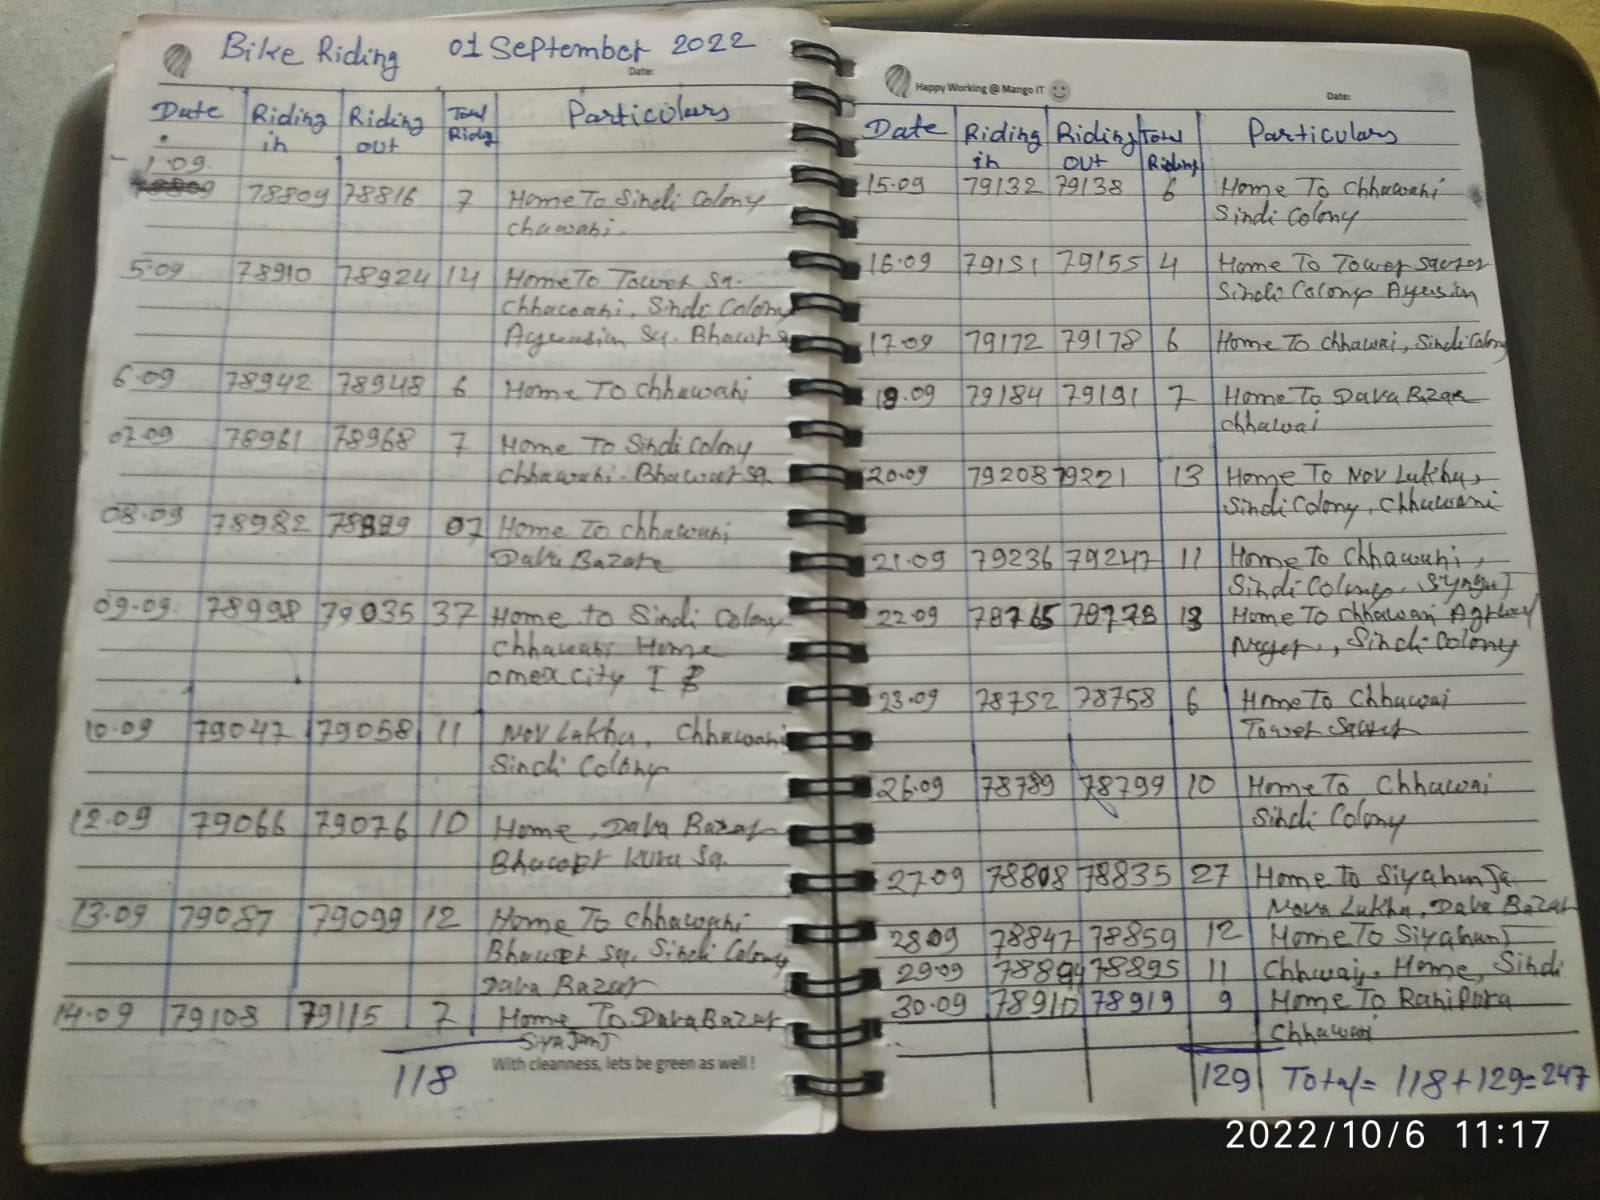 Bike Riding 01 September 2022
Date:
Date Riding in Riding out Total Riding Particulars
1.09.
78809 78816 7 Home To Sindi Colony
chawahi.
5.09 78910 78924 14 Home To Tower Sq.
Chhacoahi, Sindi Colony
Sq. Bhawr
6.09 78942 78948 6 Home To Chhawahi
07.09 78961 78968 7 Home To Sindi Colony
Chhawahi. Bhawar sq.
08.09 78982 07 Home To chhawahi
Dava Bazare
09.09. 78998 79035 37 Home to Sindi Colony
Chhawahi Home
omex city I
10.09 79047 79058 11 Nov Lakha, Chhawahi
Sindi Colony
12.09 79066 79076 10 Home, Dava Bazar
Sq.
13.09 79087 79099 12 Home To Chhawahi
sq. Sindi Colony
Dava Bazar
14.09 79108 79115 7 Home To Dava Bazar
118
With cleanness, lets be green as well !
Happy Working @ Mango IT
Date:
Date Riding in Riding out Total Riding Particulars
15.09 79132 79138 6 Home To Chhawahi
Sindi Colony
16.09 79151 79155 4 Home To Tower
Sindi Colony
17.09 79172 79178 6 Home To chhawai, Sindi Colony
19.09 79184 79191 7 Home To Dava Bzar
chhawai
20.09 79208 79221 13 Home To Nov Lakha,
Sindi Colony, Chhawani
21.09 79236 79247 11 Home To Chhawahi,
Sindi Colony,
22.09 78765 78778 13 Home To Chhawani
Sindi Colony
23.09 78752 78758 6 Home To Chhawai
Tower
26.09 78789 78799 10 Home To Chhawai
Sindi Colony
27.09 78808 78835 27 Home to Siyahunja
Nova Lakha, Dava Bazar
28.09 78847 78859 12 Home To Siyahunj
29.09 78895 11 Chhwai, Home, Sindi
30.09 78910 78919 9 Home To Ranipura
Chhawani
129 Total = 118 + 129 = 247
2022/10/6 11:17